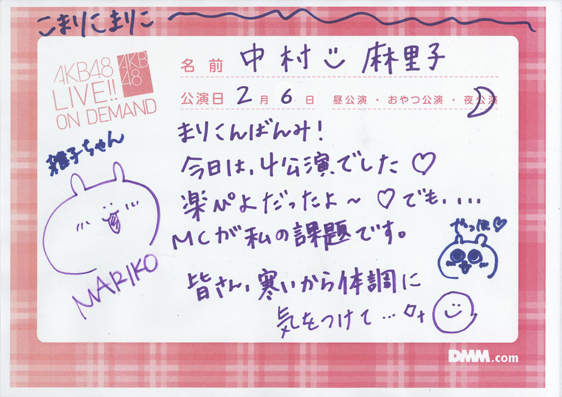 こまりこまりこ
AKB48
LIVE!!
ON DEMAND
AKB
48
名前 中村 麻里子
公演日 2月6日 昼公演・おやつ公演・夜公演
まりこんばんみ!
今日は、4公演でした♡
楽ぴよだったよ〜♡でも、...
MCが私の課題です。
皆さん、寒いから体調に
気をつけて…
雅子ちゃん
MARIKO
やっほ♡
DMM.com